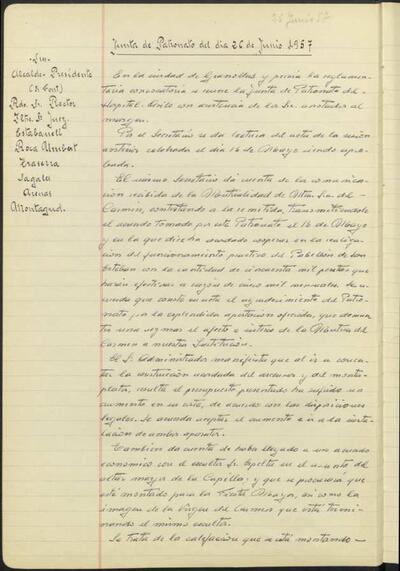 26 Junio 57
Junta de Patronato del dia 26 de Junio 1957
-Sres-
Alcalde-Presidente
(Sr. Font)
Rdo. Sr. Rector
Iltre. Sr. Juez.
Estabanell
Roca Umbert
Traserra
Sagalés
Arenas
Montagud.
En la ciudad de Granollers y previa la reglamen-
taria convocatoria se reune la Junta de Patronato del
Hospital-Asilo con asistencia de los Srs. anotados al
margen.
Por el Secretario se da lectura del acta de la sesión
anterior celebrada el dia 16 de Mayo siendo apro-
bada.
El mismo Secretario dá cuenta de la comunica-
ción recibida de la Mutualidad de Ntra. Sra. del
Carmen, contestando a la remitida, transmitiendole
el acuerdo tomado por este Patronato el 16 de Mayo
y en la que dicha acordado cooperar en la realiza-
ción del funcionamiento positivo del Pabellón de San
Esteban con la cantidad de cincuenta mil pesetas que
harán efectivas a razón de cinco mil mensuales. Se a-
cuerda que conste en acta el agradecimiento del Patro-
nato, por la esplendida aportación ofrecida, que demues-
tra una vez mas el afecto e interes de la Mutua del
Carmen a nuestra Institución.
El Sr. Administrador manifiesta que al ir a concer-
tar la construcción acordada del ascensor y del monta-
platos, resulta el presupuesto presentado ha sufrido un
aumento en su coste, de acuerdo con las disposiciones
legales. Se acuerda aceptar el aumento e ir a la insta-
lación de ambos aparatos.
Tambien da cuenta de haber llegado a un acuerdo
economico con el escultor Sr. Espelta en el asunto del
altar mayor de la Capilla; y que se procurará que
esté montado para la Fiesta Mayor, asi como la
imagen de la Virgen del Carmen que está termi-
nando el mismo escultor.
Se trata de la calefacción que se está montando-